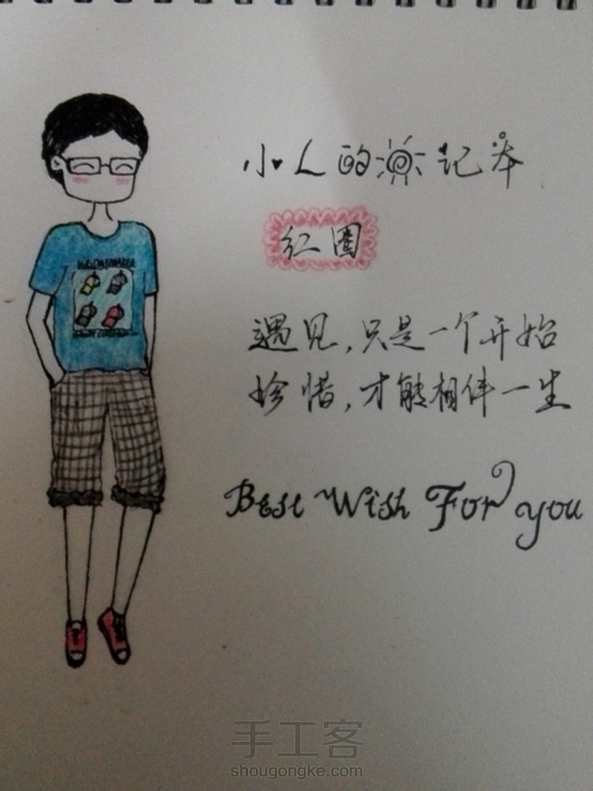 小L的记本
红圈
遇见,只是一个开始
珍惜,才能相伴一生
Best Wish For you
手工客
shougongke.com